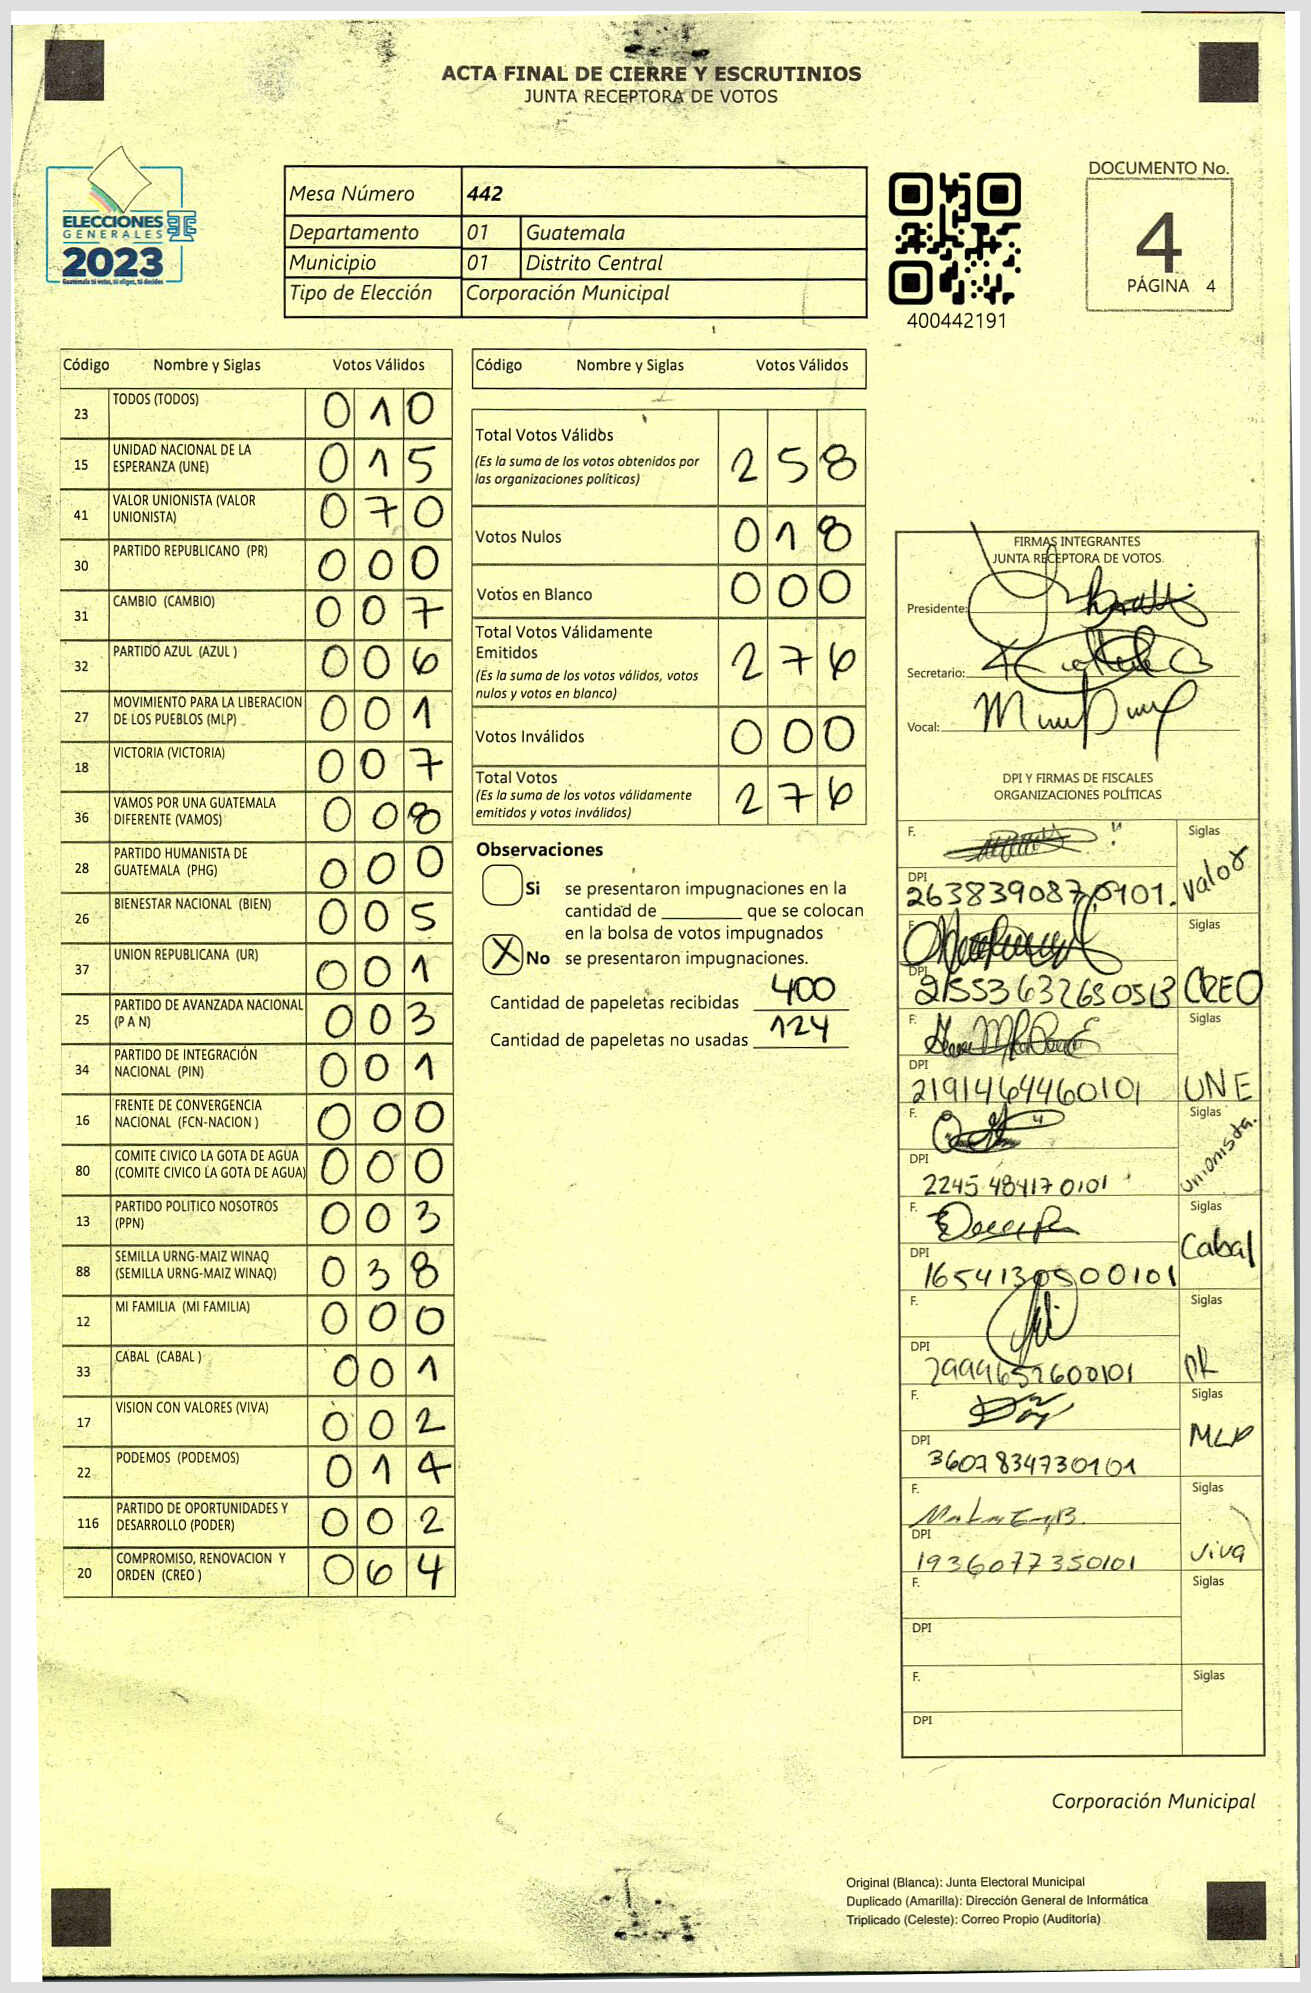 ACTA FINAL DE CIERRE Y ESCRUTINIOS
JUNTA RECEPTORA DE VOTOS
ELECCIONES
GENERALES
2023
Guatemala tú votas, tú eliges, tú decides
Mesa Número 442
Departamento 01 Guatemala
Municipio 01 Distrito Central
Tipo de Elección Corporación Municipal
400442191
DOCUMENTO No.
4
PÁGINA 4
Código Nombre y Siglas Votos Válidos
23 TODOS (TODOS) 0 1 0
15 UNIDAD NACIONAL DE LA
ESPERANZA (UNE) 0 1 5
41 VALOR UNIONISTA (VALOR
UNIONISTA) 0 7 0
30 PARTIDO REPUBLICANO (PR) 0 0 0
31 CAMBIO (CAMBIO) 0 0 7
32 PARTIDO AZUL (AZUL ) 0 0 6
27 MOVIMIENTO PARA LA LIBERACION
DE LOS PUEBLOS (MLP) 0 0 1
18 VICTORIA (VICTORIA) 0 0 7
36 VAMOS POR UNA GUATEMALA
DIFERENTE (VAMOS) 0 0 8
28 PARTIDO HUMANISTA DE
GUATEMALA (PHG) 0 0 0
26 BIENESTAR NACIONAL (BIEN) 0 0 5
37 UNION REPUBLICANA (UR) 0 0 1
25 PARTIDO DE AVANZADA NACIONAL
(P A N) 0 0 3
34 PARTIDO DE INTEGRACIÓN
NACIONAL (PIN) 0 0 1
16 FRENTE DE CONVERGENCIA
NACIONAL (FCN-NACION ) 0 0 0
80 COMITE CIVICO LA GOTA DE AGUA
(COMITE CIVICO LA GOTA DE AGUA) 0 0 0
13 PARTIDO POLITICO NOSOTROS
(PPN) 0 0 3
88 SEMILLA URNG-MAIZ WINAQ
(SEMILLA URNG-MAIZ WINAQ) 0 3 8
12 MI FAMILIA (MI FAMILIA) 0 0 0
33 CABAL (CABAL ) 0 0 1
17 VISION CON VALORES (VIVA) 0 0 2
22 PODEMOS (PODEMOS) 0 1 4
116 PARTIDO DE OPORTUNIDADES Y
DESARROLLO (PODER) 0 0 2
20 COMPROMISO, RENOVACION Y
ORDEN (CREO ) 0 6 4
Código Nombre y Siglas Votos Válidos
Total Votos Válidos
(Es la suma de los votos obtenidos por
las organizaciones políticas) 2 5 8
Votos Nulos 0 1 8
Votos en Blanco 0 0 0
Total Votos Válidamente
Emitidos
(Es la suma de los votos válidos, votos
nulos y votos en blanco) 2 7 6
Votos Inválidos 0 0 0
Total Votos
(Es la suma de los votos válidamente
emitidos y votos inválidos) 2 7 6
Observaciones
Si se presentaron impugnaciones en la
cantidad de ________ que se colocan
en la bolsa de votos impugnados
X No se presentaron impugnaciones.
Cantidad de papeletas recibidas 400
Cantidad de papeletas no usadas 124
FIRMAS INTEGRANTES
JUNTA RECEPTORA DE VOTOS
Presidente:
Secretario:
Vocal:
DPI Y FIRMAS DE FISCALES
ORGANIZACIONES POLÍTICAS
F. Siglas
DPI Valor
F. Siglas
DPI 2155363265 0513 CREO
F. Siglas
DPI 2191464460101 UNE
F. Siglas
DPI 2245 48417 0101 Unionista.
F. Siglas
DPI 1654130500101 Cabal
F. Siglas
DPI 2999652600101 PR
F. Siglas
DPI 3607834730101 MLP
F. Siglas
DPI 1936077350101 Viva
F. Siglas
DPI
F. Siglas
DPI
Corporación Municipal
Original (Blanca): Junta Electoral Municipal
Duplicado (Amarilla): Dirección General de Informática
Triplicado (Celeste): Correo Propio (Auditoría)